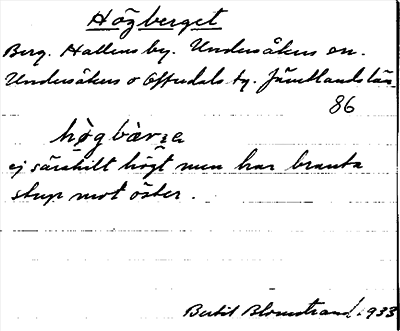 Högberget
Berg. Hallens by. Undersåkers sn.
Undersåkers o Offerdals tg. Jämtlands län
86
högbàrʒe
ej särskilt högt men har branta
stup mot öster.
Bertil Blomstrand 1933